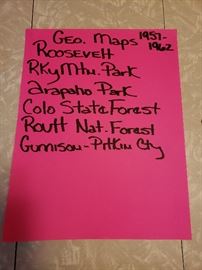 Geo. Maps 1957-1962
Roosevelt
Rky Mtn. Park
Arapaho Park
Colo State Forest
Routt Nat. Forest
Gunnison-Pitkin Cty